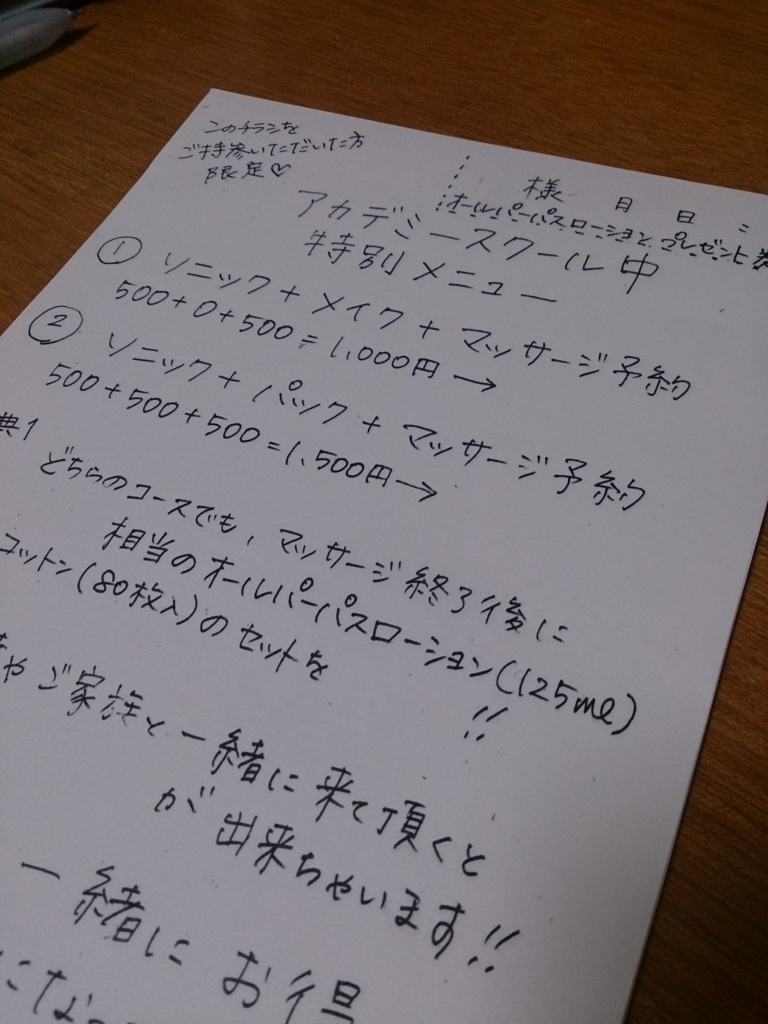 このチラシを
ご持参いただいた方
限定♡
様 月 日 :
オールパーパスローション プレゼント
アカデミースクール中
特別メニュー
① ソニック+メイク+マッサージ予約
500+0+500=1,000円→
② ソニック+パック+マッサージ予約
500+500+500=1,500円→
典1
どちらのコースでも、マッサージ終了後に
相当のオールパーパスローション(125ml)
コットン(80枚入)のセットを
!!
やご家族と一緒に来て頂くと
が出来ちゃいます!!
一緒にお得
になっ